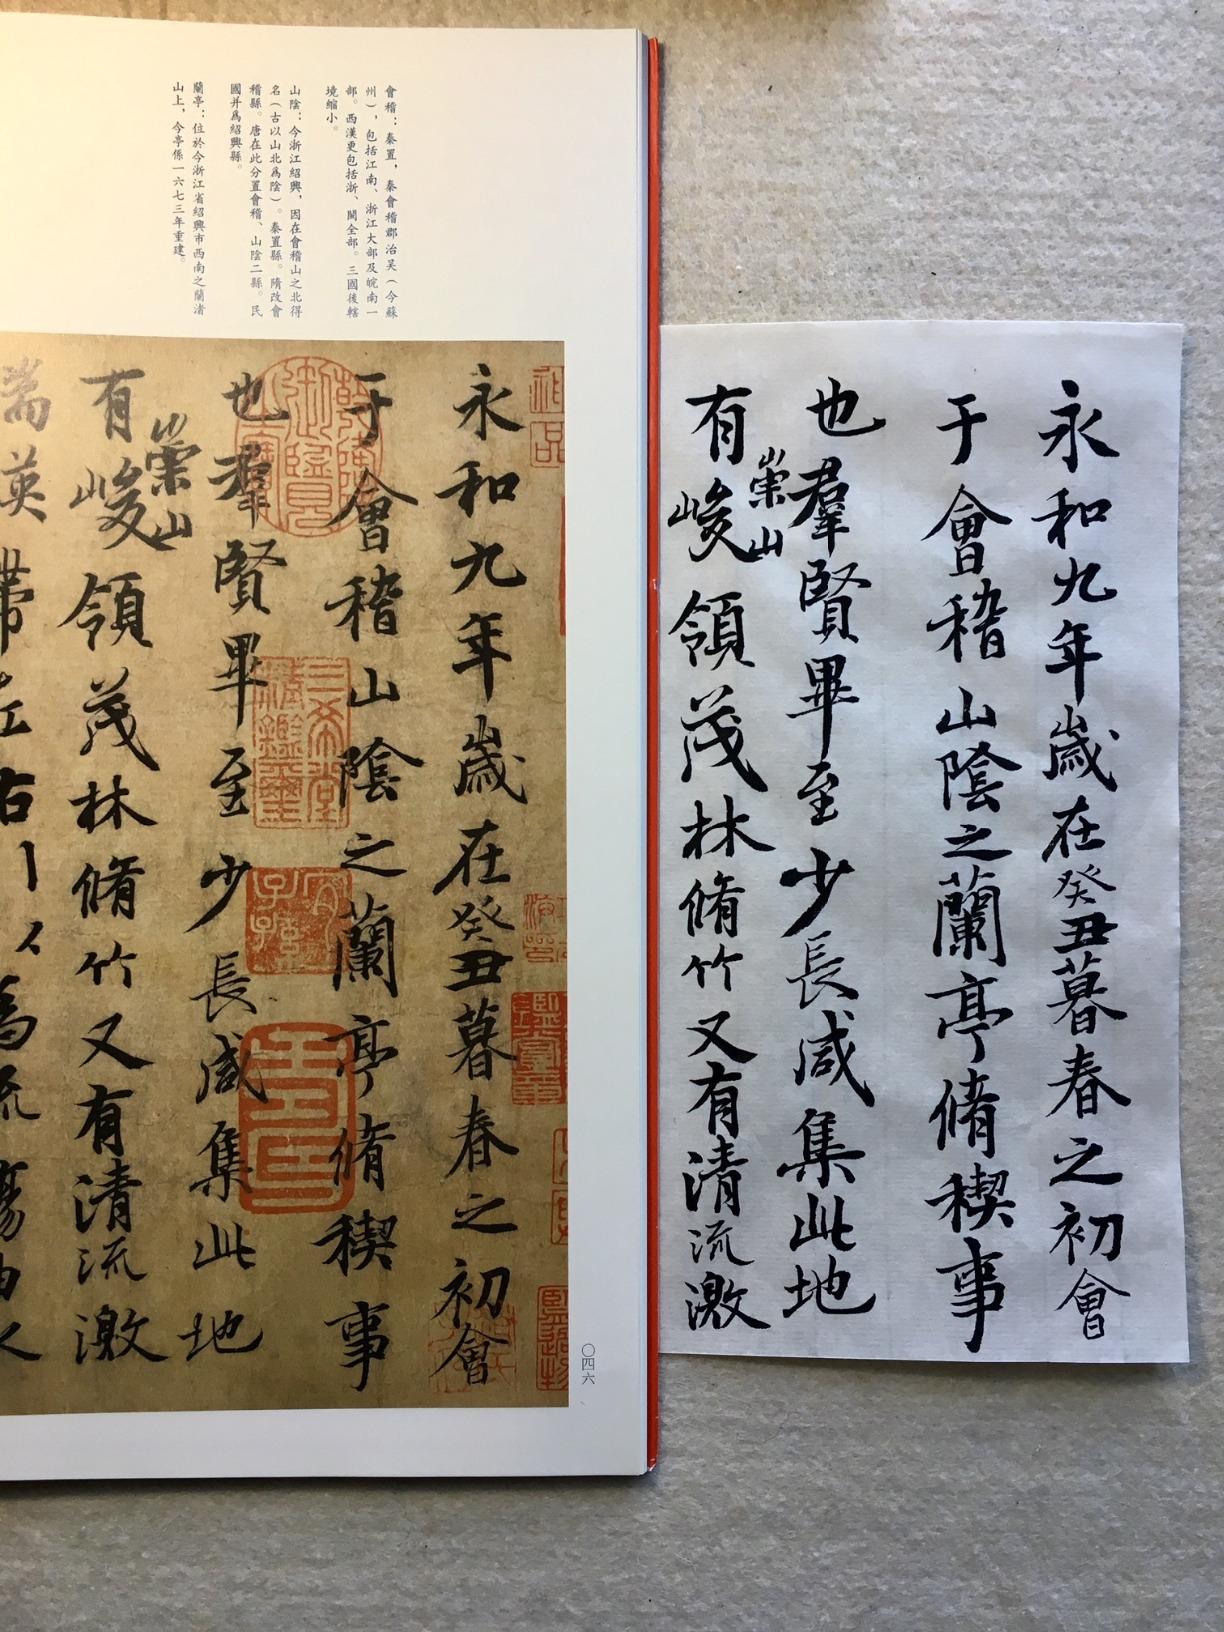 會稽：秦置，秦會稽郡治吴（今蘇
州），包括江南、浙江大部及皖南一
部。西漢更包括浙、閩全部。三國後轄
境縮小。
山陰：今浙江紹興，因在會稽山之北得
名（古以山北爲陰）。秦置縣。隋改會
稽縣。唐在此分置會稽、山陰二縣。民
國并爲紹興縣。
蘭亭：位於今浙江省紹興市西南之蘭渚
山上，今亭係一六七三年重建。
永和九年歲在癸丑暮春之初會
于會稽山陰之蘭亭脩稧事
也羣賢畢至少長咸集此地
崇山
有峻領茂林脩竹又有清流激
湍英帶左右
〇四六
永和九年歲在癸丑暮春之初會
于會稽山陰之蘭亭脩稧事
也羣賢畢至少長咸集此地
崇山
有峻領茂林脩竹又有清流激